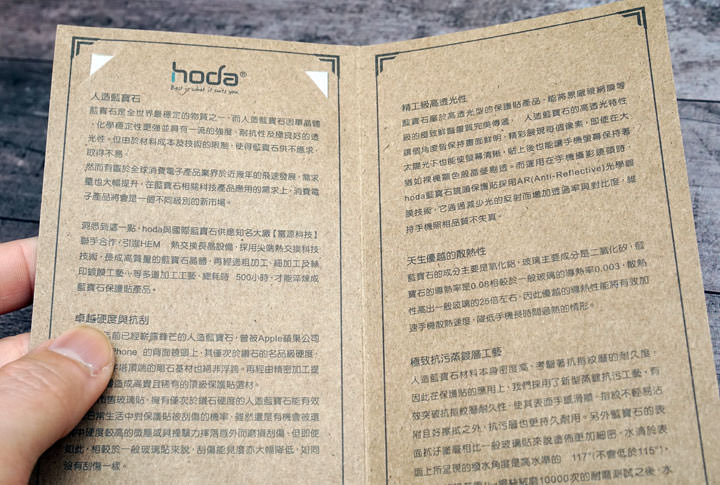 hoda®
人造藍寶石
藍寶石是全世界最穩定的物質之一，而人造藍寶石因單晶體
，化學穩定性更強並具有一流的強度、耐抗性及極良好的透
光性。但由於材料成本及技術的限制，使得藍寶石供不應求，
取得不易。
然而有鑑於全球消費電子產品業界於近幾年的飛速發展，需求
量也大幅提升，在藍寶石相關科技產品應用的需求上，消費電
子產品將會是一個不同級別的新市場。
洞悉到這一點，hoda與國際藍寶石供應知名大廠【富源科技】
聯手合作，引進HEM 熱交換長晶設備，採用尖端熱交換科技
技術，長成高質量的藍寶石晶體，再經過粗加工、細加工及絲
印鍍膜工藝…等多道加工工藝，總耗時 500小時，才能淬煉成
藍寶石保護貼產品。
卓越硬度與抗刮
前已經嶄露鋒芒的人造藍寶石，曾被Apple蘋果公司
Phone 的背面鏡頭上，其僅次於鑽石的名品級硬度，
塔頂端的剛石基材也絕非浮誇。再經由精密加工提
造成高貴且稀有的頂級保護貼選材。
售玻璃貼，擁有僅次於鑽石硬度的人造藍寶石能有效
常生活中對保護貼被刮傷的機率，雖然還是有機會被環
中硬度較高的微塵或與撞擊力摔落意外而磨損刮傷，但即使
如此，相較於一般玻璃貼來說，刮傷能見度亦大幅降低，如同
沒有刮傷一樣。
精工級高透光性
藍寶石屬於高透光型的保護貼產品，能將原廠視網膜等
級的極致鮮豔畫質完美傳遞， 人造藍寶石的高透光特性
讓個角度皆保持畫面鮮明，精彩展現每個像素，即使在大
太陽光下也能使螢幕清晰，貼上後也能讓手機螢幕保持著
猶如裸機單色般晶瑩剔透。而運用在手機攝影鏡頭時，
hoda藍寶石鏡頭保護貼採用AR(Anti-Reflective)光學鍍
膜技術，它通過減少光的反射而增加透過率與對比度，維
持手機照相品質不失真。
天生優越的散熱性
藍寶石的成分主要是氧化鋁，玻璃主要成分是二氧化矽，藍
寶石的導熱率是0.08相較於一般玻璃的導熱率0.003，散熱
性高出一般玻璃的25倍左右，因此優越的導熱性能將有效加
速手機散熱速度，降低手機長時間過熱的情形。
極致抗污蒸鍍層工藝
人造藍寶石材料本身密度高、考驗著抗指紋層的耐久度，
因此在保護貼的應用上，我們採用了新型蒸鍍抗污工藝，有
效突破抗指紋層耐久性，使其表面手感滑順、指紋不輕易沾
附且好擦拭之外，抗污層也更持久耐用。另外藍寶石的表
面抗汙塗層相比一般玻璃貼來說塗佈更加細密，水滴於表
面上所呈現的撥水角度是高水準的 117°(不會低於115°)，
10000次的耐磨測試之後，水